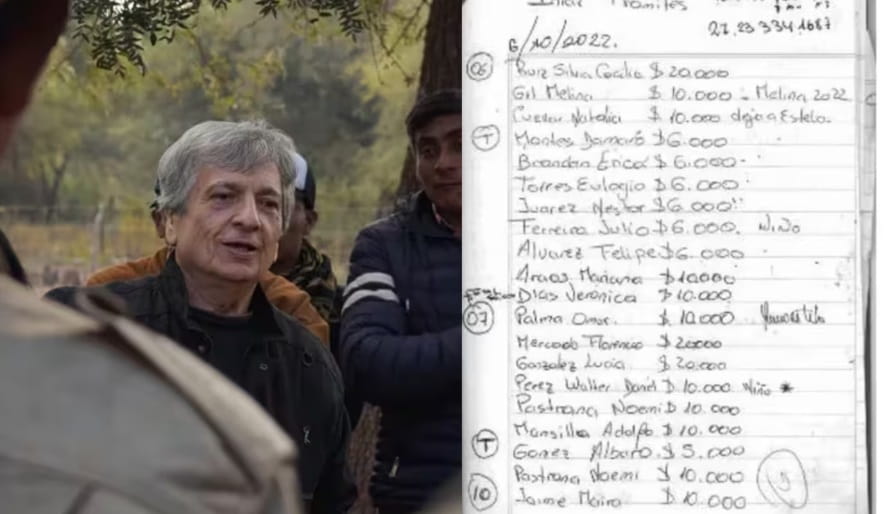 Iniciar Tramites
27.23 334.1687
6/10/2022.
06 Ruiz Silvia Cecilia $ 20.000
Gil Melina $ 10.000 - Melina 2022
Cuevar Natalia $ 10.000 dejo a Estela.
T Montes Damaró $6.000
Brandan Erica $ 6.000-
Torres Eulogio $ 6.000
Juarez Nestor $6.000"
Ferreira Julio $ 6.000. Niño
Alvarez Felipe $6.000
Araoz Mariana $ 10000
Dias Veronica $ 10.000
07 Palma Omar. $ 10.000
Mercado Florencio $ 20000
Gonzalez Lucia $ 20.000
Perez Walter Daniel $ 10.000 Niño *
Pastrana Noemi $ 10.000
Mansilla Adolfo $ 10.000
T Gomez Albaro $ 5.000
Pastrana Noemi $ 10.000
10 Jaime Maira $ 10.000